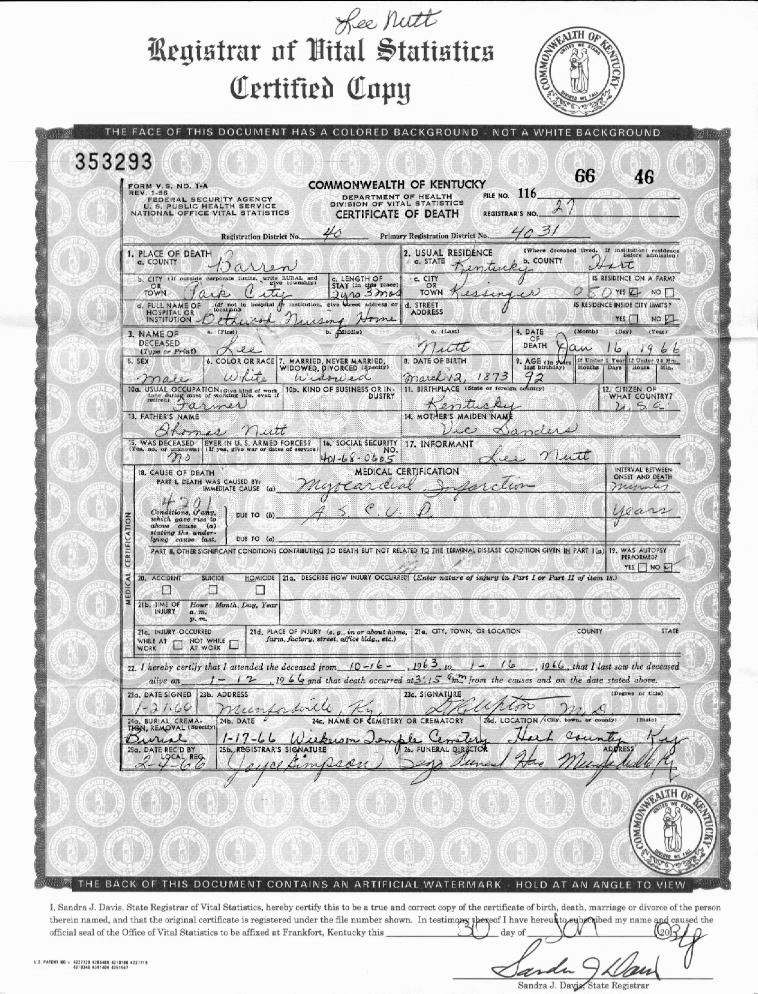 Lee Nutt
Registrar of Vital Statistics
Certified Copy
COMMONWEALTH OF KENTUCKY
UNITED WE STAND
DIVIDED WE FALL
THE FACE OF THIS DOCUMENT HAS A COLORED BACKGROUND - NOT A WHITE BACKGROUND
353293
66 46
FORM V. S. NO. 1-A
FEDERAL SECURITY AGENCY
U. S. PUBLIC HEALTH SERVICE
NATIONAL OFFICE VITAL STATISTICS
COMMONWEALTH OF KENTUCKY
DEPARTMENT OF HEALTH
DIVISION OF VITAL STATISTICS
CERTIFICATE OF DEATH
FILE NO. 116
REGISTRAR'S NO. 27
Registration District No. 40 Primary Registration District No. 4031
1. PLACE OF DEATH
a. COUNTY Barren
2. USUAL RESIDENCE (Where deceased lived. If institution: residence before admission)
a. STATE Kentucky b. COUNTY Hart
b. CITY (If outside corporate limits, write RURAL and give township) OR TOWN Park City
c. LENGTH OF STAY (in this place) 2 yrs 3 mos
c. CITY OR TOWN Kessinger
IS RESIDENCE ON A FARM? YES NO
d. FULL NAME OF (If not in hospital or institution, give street address or location) HOSPITAL OR INSTITUTION Nursing Home
d. STREET ADDRESS
IS RESIDENCE INSIDE CITY LIMITS? YES NO
3. NAME OF DECEASED (Type or Print)
a. (First) Lee b. (Middle) c. (Last) Nutt
4. DATE OF DEATH (Month) (Day) (Year) Jan 16, 1966
5. SEX Male
6. COLOR OR RACE White
7. MARRIED, NEVER MARRIED, WIDOWED, DIVORCED (Specify) Widowed
8. DATE OF BIRTH March 12, 1873
9. AGE (In years last birthday) 92
If Under 1 Year Months Days If Under 24 Hrs. Hours Min.
10a. USUAL OCCUPATION (Give kind of work done during most of working life, even if retired) Farmer
10b. KIND OF BUSINESS OR INDUSTRY
11. BIRTHPLACE (State or foreign country) Kentucky
12. CITIZEN OF WHAT COUNTRY? U.S.A.
13. FATHER'S NAME Thomas Nutt
14. MOTHER'S MAIDEN NAME Vic Sanders
15. WAS DECEASED EVER IN U. S. ARMED FORCES? (Yes, no, or unknown) (If yes, give war or dates of service) No
16. SOCIAL SECURITY NO.
17. INFORMANT Lee Nutt
18. CAUSE OF DEATH
MEDICAL CERTIFICATION
INTERVAL BETWEEN ONSET AND DEATH
PART I. DEATH WAS CAUSED BY:
IMMEDIATE CAUSE (a) Myocardial Infarction
Conditions, if any, which gave rise to above cause (a) stating the underlying cause last.
DUE TO (b) A S C V D years
DUE TO (c)
PART II. OTHER SIGNIFICANT CONDITIONS CONTRIBUTING TO DEATH BUT NOT RELATED TO THE TERMINAL DISEASE CONDITION GIVEN IN PART I (a)
19. WAS AUTOPSY PERFORMED? YES NO
MEDICAL CERTIFICATION
20. ACCIDENT SUICIDE HOMICIDE
21a. DESCRIBE HOW INJURY OCCURRED (Enter nature of injury in Part I or Part II of item 18.)
21b. TIME OF INJURY Hour Month, Day, Year a. m. p. m.
21c. INJURY OCCURRED WHILE AT WORK NOT WHILE AT WORK
21d. PLACE OF INJURY (e. g., in or about home, farm, factory, street, office bldg., etc.)
21e. CITY, TOWN, OR LOCATION COUNTY STATE
22. I hereby certify that I attended the deceased from 10-16-, 1963, to 1-16, 1966, that I last saw the deceased
alive on 1-12, 1966 and that death occurred at 3:15 m from the causes and on the date stated above.
23a. DATE SIGNED 1-21-66
23b. ADDRESS Munfordville, Ky.
23c. SIGNATURE (Degree or title) M D
24a. BURIAL, CREMATION, REMOVAL (Specify) Burial
24b. DATE 1-17-66
24c. NAME OF CEMETERY OR CREMATORY Temple Cemetery
24d. LOCATION (City, town, or county) (State) Hart County Ky
25a. DATE REC'D BY LOCAL REG. 2-4-66
25b. REGISTRAR'S SIGNATURE Joyce Simpson
26. FUNERAL DIRECTOR ADDRESS Munfordville Ky
COMMONWEALTH OF KENTUCKY
THE BACK OF THIS DOCUMENT CONTAINS AN ARTIFICIAL WATERMARK - HOLD AT AN ANGLE TO VIEW
I, Sandra J. Davis, State Registrar of Vital Statistics, hereby certify this to be a true and correct copy of the certificate of birth, death, marriage or divorce of the person
therein named, and that the original certificate is registered under the file number shown. In testimony thereof I have hereunto subscribed my name and caused the
official seal of the Office of Vital Statistics to be affixed at Frankfort, Kentucky this 30 day of Jan
Sandra J Davis
Sandra J. Davis, State Registrar